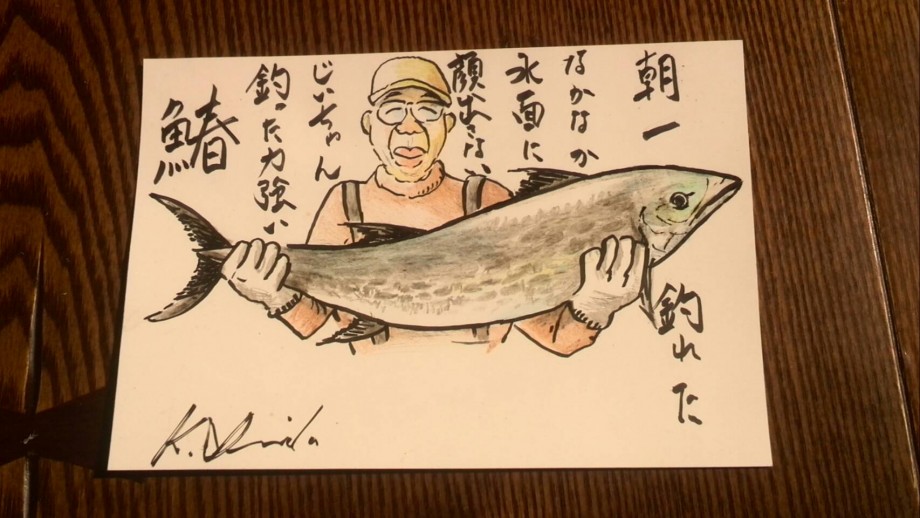 朝一
釣れた
なかなか
水面に
顔出さない
じいちゃん
釣った力強い
鰆